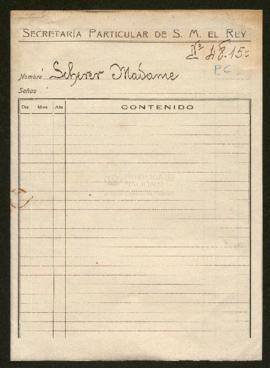 SECRETARÍA PARTICULAR DE S. M. EL REY
PC
Nombre Scherer Madame
Señas
Día Mes Año CONTENIDO